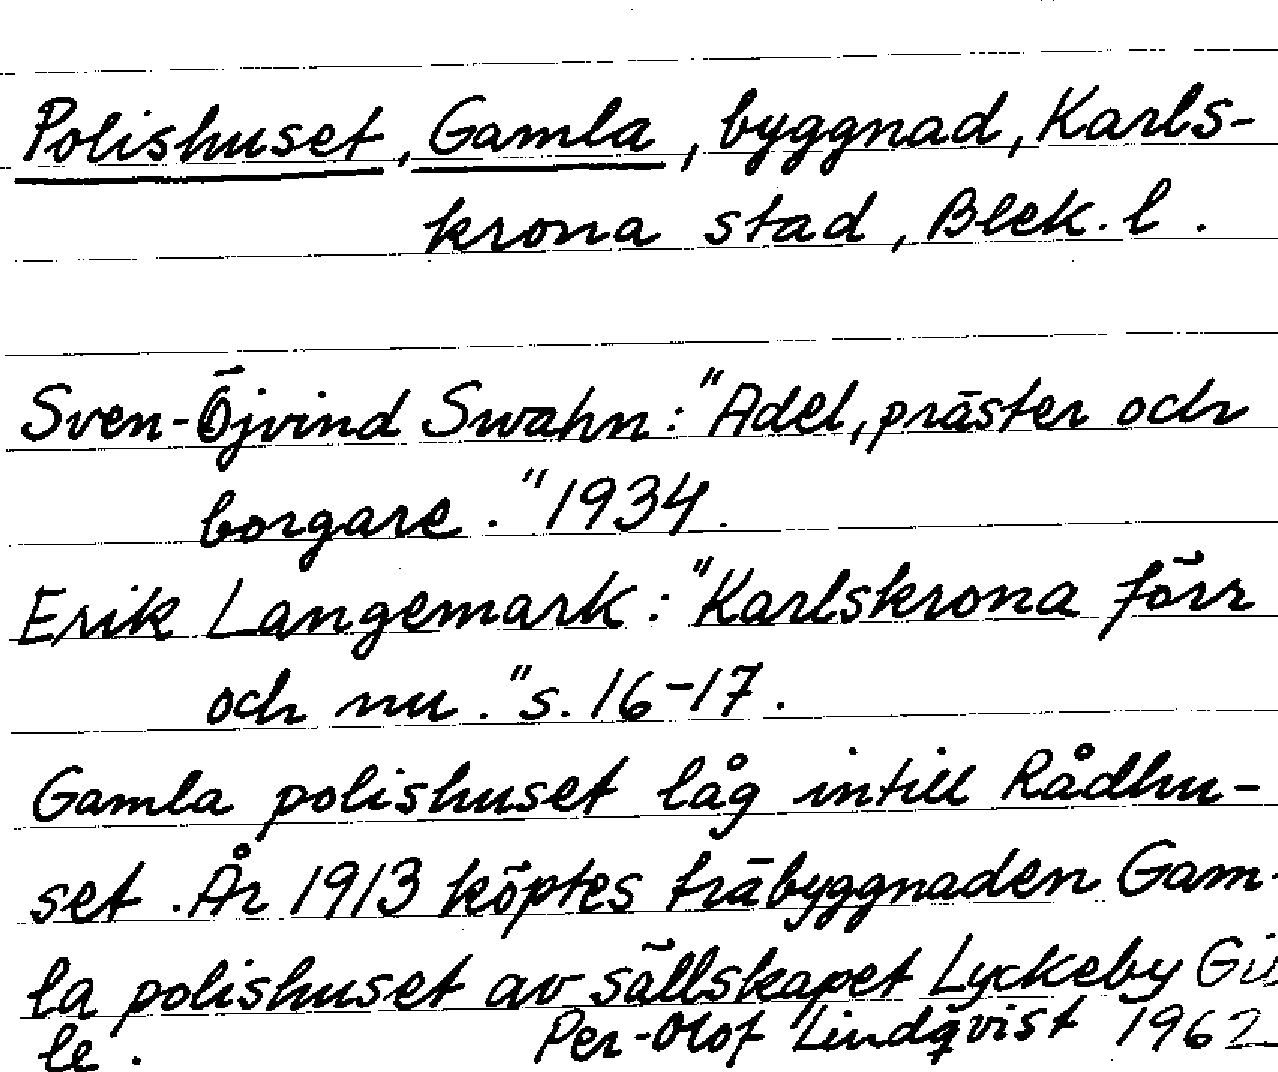 Polishuset, Gamla, byggnad, Karls-
krona stad, Blek. l.
Sven-Öjvind Swahn: "Adel, präster och
borgare." 1934.
Erik Langemark: "Karlskrona förr
och nu." s. 16-17.
Gamla polishuset låg intill Rådhu-
set. År 1913 köptes träbyggnaden Gam-
la polishuset av sällskapet Lyckeby Gil
le.
Per-Olof Lindqvist 1962